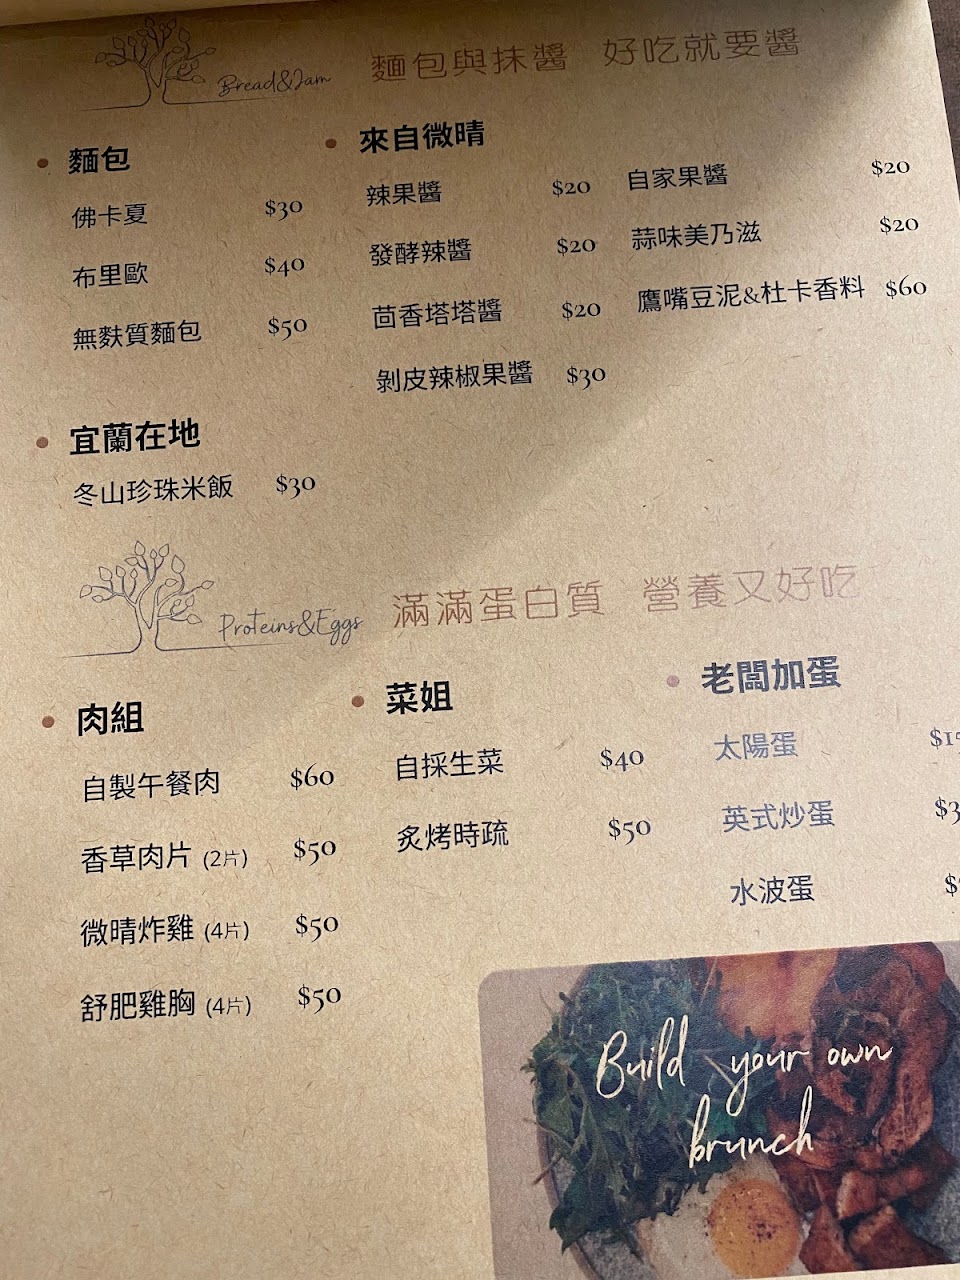 Bread&Jam
麵包與抹醬 好吃就要醬
麵包
佛卡夏 $30
布里歐 $40
無麩質麵包 $50
來自微晴
辣果醬 $20
發酵辣醬 $20
茴香塔塔醬 $20
剝皮辣椒果醬 $30
自家果醬 $20
蒜味美乃滋 $20
鷹嘴豆泥&杜卡香料 $60
宜蘭在地
冬山珍珠米飯 $30
Proteins&Eggs
滿滿蛋白質 營養又好吃
肉組
自製午餐肉 $60
香草肉片 (2片) $50
微晴炸雞 (4片) $50
舒肥雞胸 (4片) $50
菜姐
自採生菜 $40
炙烤時疏 $50
老闆加蛋
太陽蛋
英式炒蛋
水波蛋
Build your own
brunch